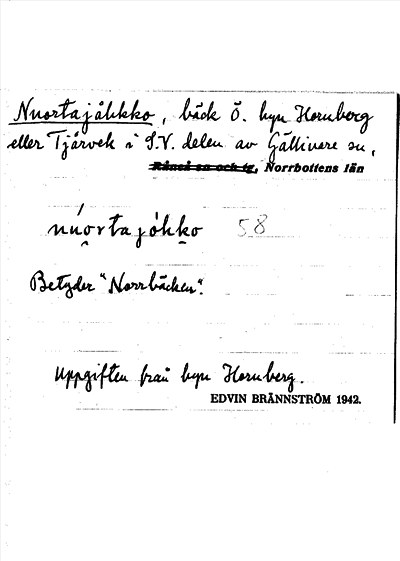 Nuortajåkko, bäck Ö. byn Hornberg
eller Tjårvek i S.V. delen av Gällivare sn,
Råneå sn och tg, Norrbottens län
núortajóhko 58
Betyder "Norrbäcken".
Uppgiften från byn Hornberg.
EDVIN BRÄNNSTRÖM 1942.